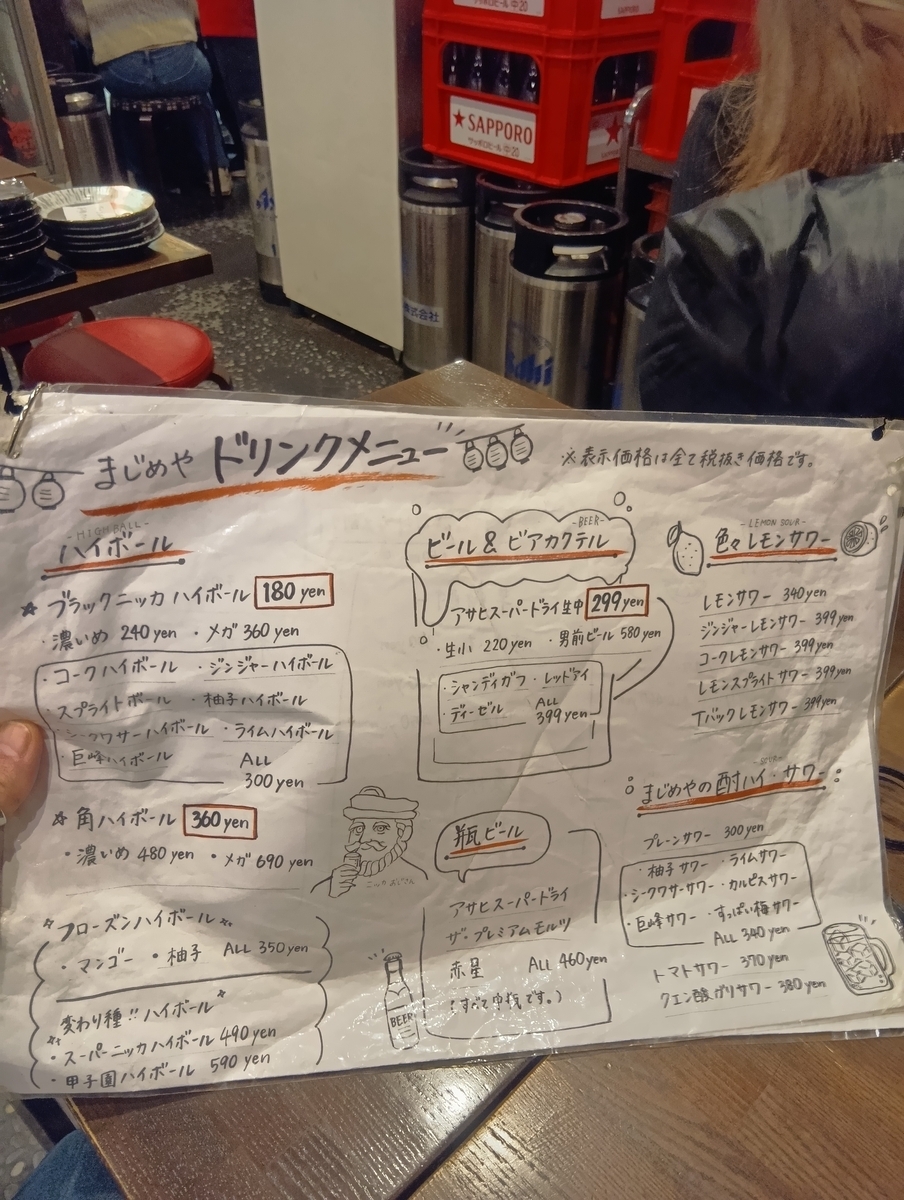 サッポロビール 中20
SAPPORO
★SAPPORO
サッポロビール 中20
株式会社
Asahi
まじめや ドリンクメニュー
※表示価格は全て税抜き価格です。
-HIGH BALL-
ハイボール
☆ ブラックニッカ ハイボール 180 yen
・濃いめ 240 yen ・メガ 360 yen
・コークハイボール ・ジンジャーハイボール
・スプライトボール ・柚子ハイボール
・シークワサーハイボール ・ライムハイボール
・巨峰ハイボール ALL
300 yen
☆ 角ハイボール 360 yen
・濃いめ 480 yen ・メガ 690 yen
フローズンハイボール
・マンゴー ・柚子 ALL 350 yen
変わり種!! ハイボール
・スーパーニッカハイボール 490 yen
・甲子園ハイボール 590 yen
-BEER-
ビール & ビアカクテル
アサヒスーパードライ生中 299 yen
・生小 220 yen ・男前ビール 580 yen
・シャンディガフ ・レッドアイ
・ディーゼル ALL
399 yen
ニッカおじさん
瓶ビール
アサヒスーパードライ
ザ・プレミアムモルツ
赤星 ALL 460 yen
(すべて中瓶です。)
BEER
-LEMON SOUR-
色々レモンサワー
レモンサワー 340 yen
ジンジャーレモンサワー 399 yen
コークレモンサワー 399 yen
レモンスプライトサワー 399 yen
Tバックレモンサワー 399 yen
-SOUR-
まじめやの酎ハイ・サワー
プレーンサワー 300 yen
・柚子サワー ・ライムサワー
・シークワサーサワー ・カルピスサワー
・巨峰サワー ・すっぱい梅サワー
ALL 340 yen
トマトサワー 370 yen
クエン酸グリサワー 380 yen